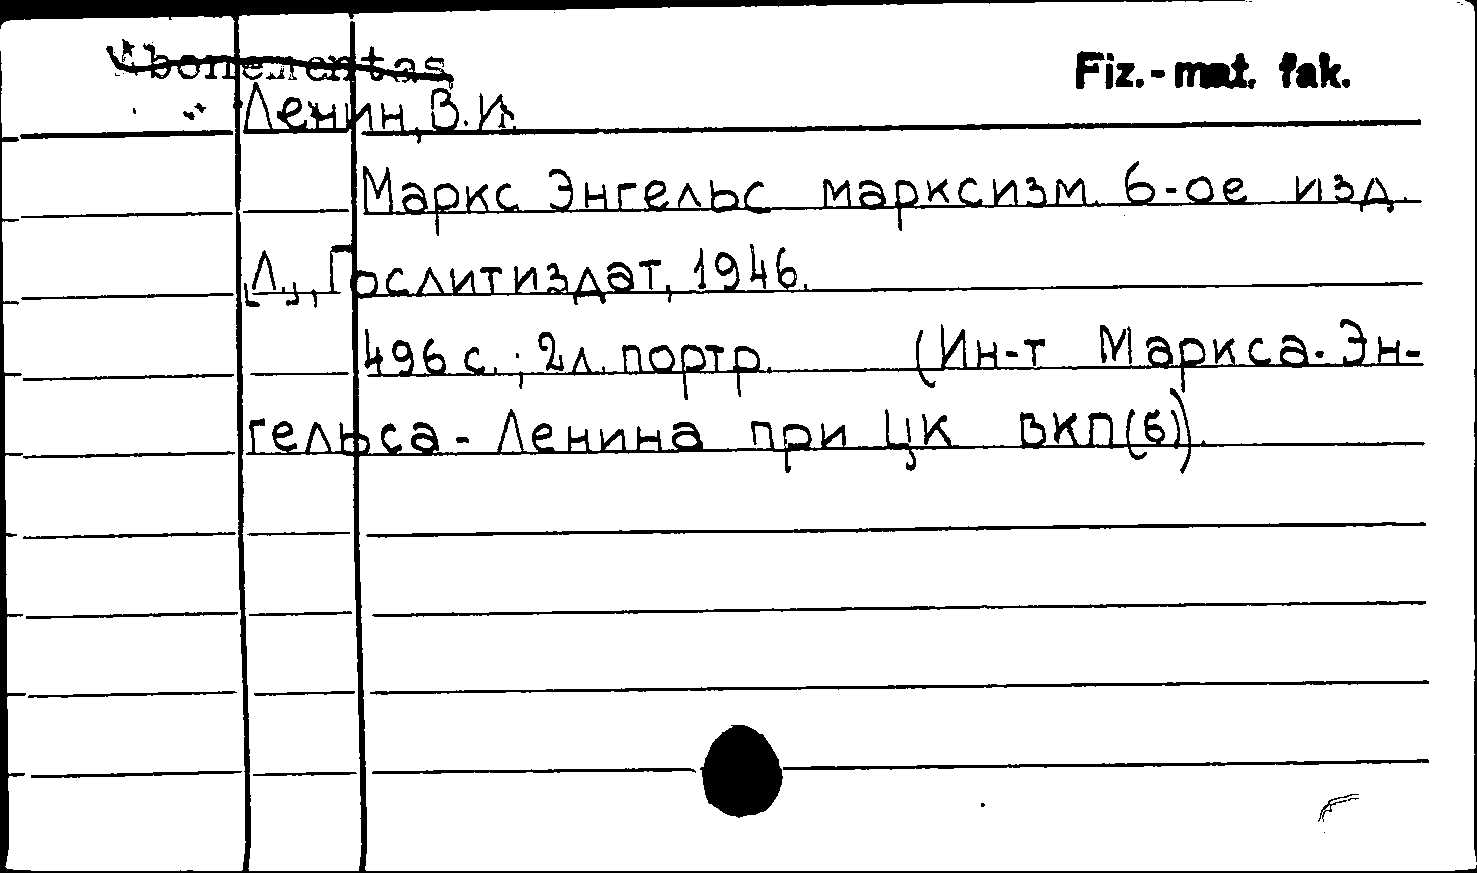 Abonementas
Fiz.-mat. fak.
Ленин, В.И.
Маркс Энгельс марксизм. 6-ое изд.
[Л.], Гослитиздат, 1946.
496 с. ; 2л. портр. (Ин-т Маркса-Эн-
гельса-Ленина при ЦК ВКП(б)).